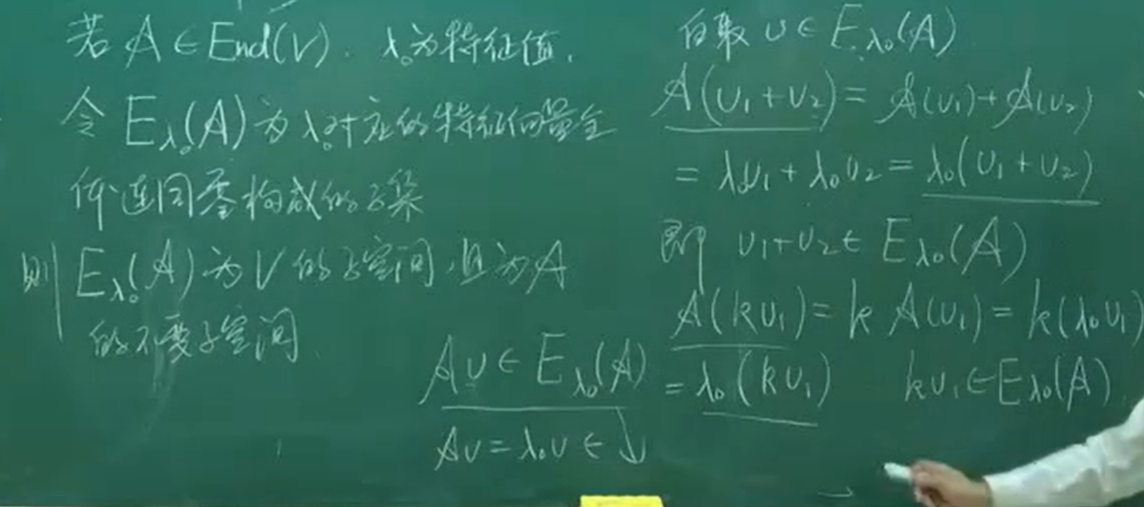 若 A ∈ End(V). λ₀为特征值.
令 E_λ₀(A) 为 λ₀对应的特征向量全
体连同零构成的子集
则 E_λ₀(A) 为 V 的子空间, 且为 A
的不变子空间.
Aυ ∈ E_λ₀(A)
Aυ = λ₀υ ∈ ↓
υ ∈ E_λ₀(A)
A(υ₁+υ₂) = A(υ₁)+A(υ₂)
= λ₀υ₁+λ₀υ₂ = λ₀(υ₁+υ₂)
即 υ₁+υ₂ ∈ E_λ₀(A)
A(kυ₁) = k A(υ₁) = k(λ₀υ₁)
= λ₀(kυ₁) kυ₁ ∈ E_λ₀(A)